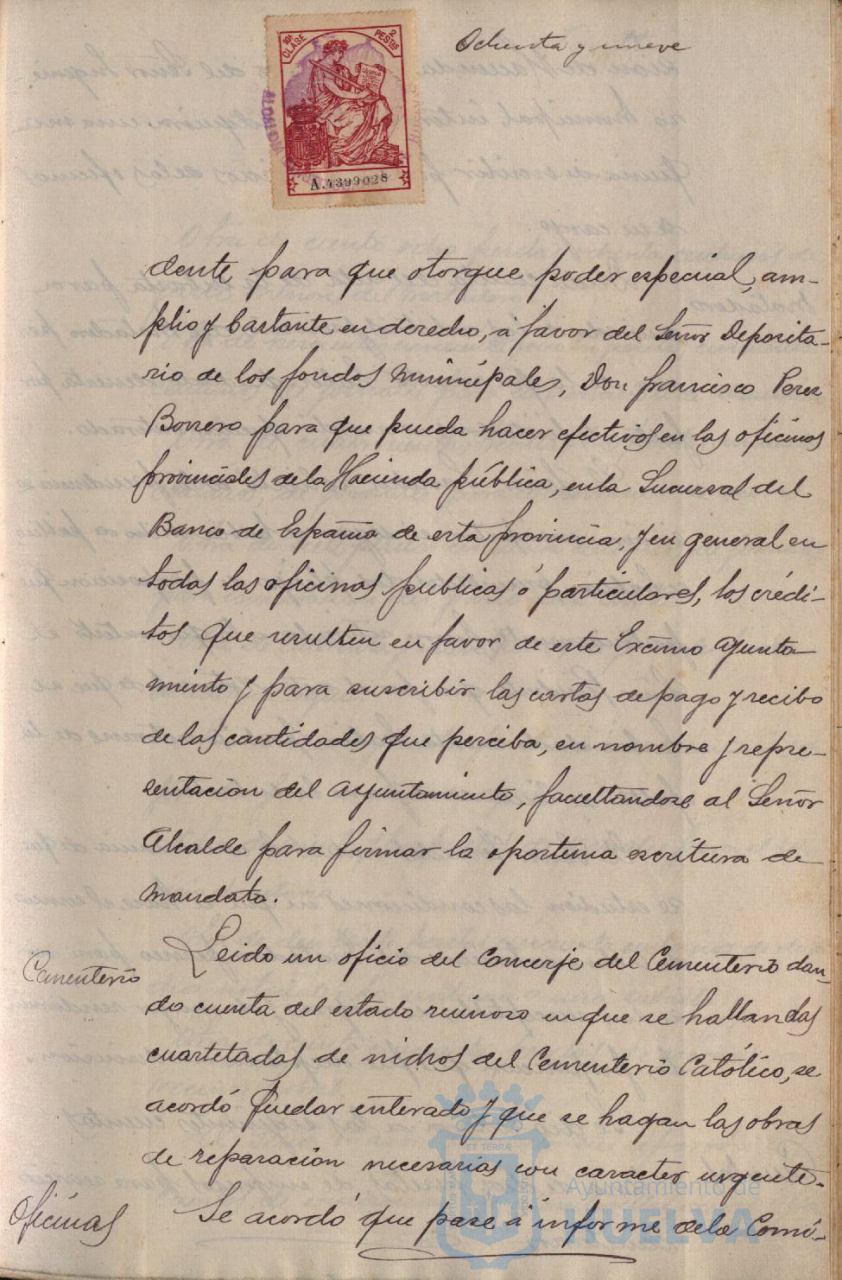 Ochenta y nueve
10ª CLASE 2 PESTAS
A.4399028
dente para que otorgue poder especial, am-
plio y bastante en derecho, á favor del Señor Deposita-
rio de los fondos municipales, Don Francisco Perez
Borrero para que pueda hacer efectivos en las oficinas
provinciales de la Hacienda pública, en la Sucursal del
Banco de España de esta provincia, y en general en
todas las oficinas publicas ó particulares, los crédi-
tos que resulten en favor de este Excmo Ayunta-
miento y para suscribir las cartas de pago y recibo
de las cantidades que perciba, en nombre y repre-
sentacion del Ayuntamiento, facultandose al Señor
Alcalde para firmar la oportuna escritura de
mandato.
Cementerio
Leido un oficio del Conserje del Cementerio dan-
do cuenta del estado ruinoso en que se hallan las
cuarteladas de nichos del Cementerio Católico, se
acordó quedar enterado y que se hagan las obras
de reparacion necesarias con caracter urgente.
Oficinas
Se acordó que pase á informe de la Comi-
Ayuntamiento de
HUELVA